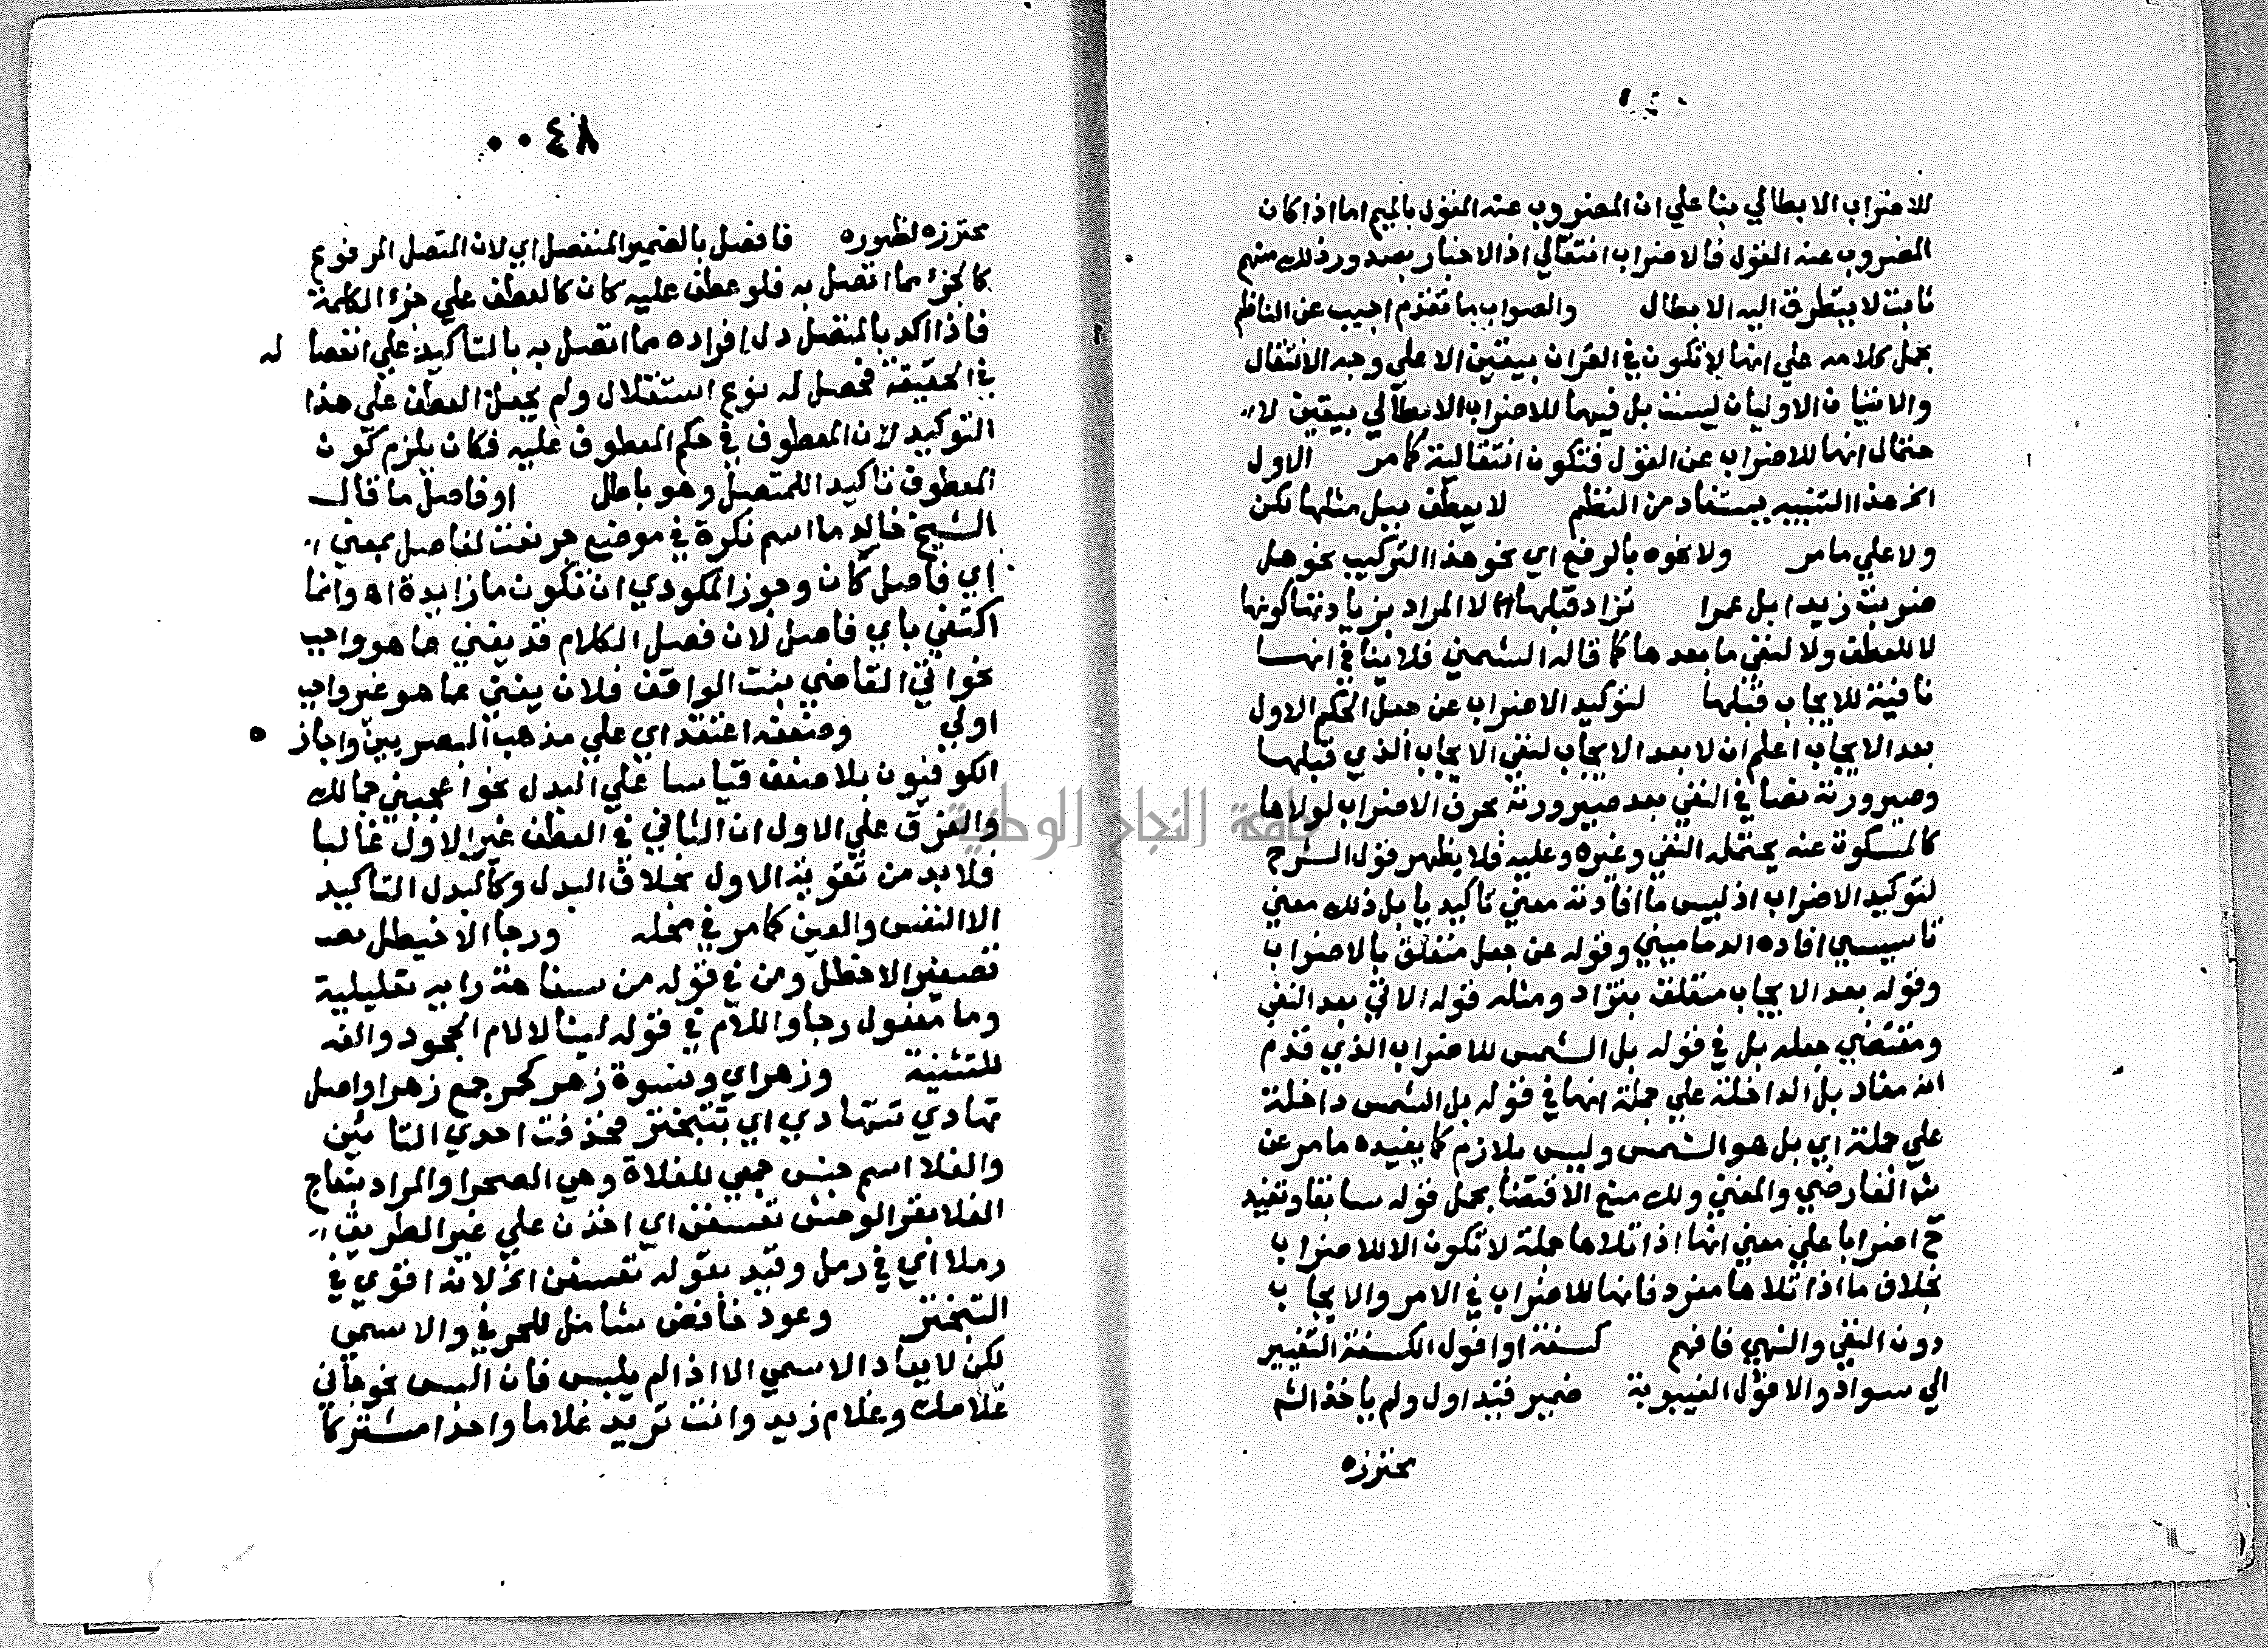 للاضراب الابطالي بنا علي ان المضروب عنه المقول بالميم اما اذا كان
المضروب عنه القول فالاضراب انتقالي اذ الاخبار بصدور ذلك منهم
ثابت لا يتطرق اليه الابطال والصواب ما تقدم اجيب عن الناظم
بحمل كلامه علي انها لا تكون في القران بيقين الا علي وجه الانتقال
والاتيان الاوليان ليست بل فيهما للاضراب الابطالي بيقين لا
حتمال انها للاضراب عن القول فتكون انتقالية كما مر الاول
الخ هذا التنبيه يستفاد من النظم لا يعطف ببل مثلها لكن
ولا علي ما مر ولا نحوه بالرفع اي نحو هذا التركيب نحو هل
ضربت زيدا بل عمرا تزاد قبلها لا المراد بزيادتها كونها
لا للعطف ولا لنفي ما بعدها كما قاله الشمني فلا ينافي انها
نافية للايجاب قبلها لتوكيد الاضراب عن جعل الحكم الاول
بعد الايجاب اعلم ان لا بعد الايجاب لنفي الايجاب الذي قبلها
وصيرورته نصا في النفي بعد صيرورته بحرف الاضراب لولاها
كالمسكوت عنه يحتمل النفي وغيره وعليه فلا يظهر قول الشرح
لتوكيد الاضراب اذ ليس ما افادته معني تاكيديا بل ذلك معني
تاسيسي افاده الدماميني وقوله عن جعل متعلق بالاضراب
وقوله بعد الايجاب متعلق بتزاد ومثله قوله الاتي بعد النفي
ومقتضي جعله بل في قوله بل الشمس للاضراب الذي قدم
انه مفاد بل الداخلة علي جملة انها في قوله بل الشمس داخلة
علي جملة اي بل هو الشمس وليس بلازم كما يفيده ما مر عن
شم الفارضي والمغني ولك منع الاقتضا بحمل قوله سابقا وتفيد
ح اضرابا علي معني انها اذا تلاها جملة لا تكون الا للاضراب
بخلاف ما اذا تلاها مفرد فانها للاضراب في الامر والايجاب
دون النفي والنهي فافهم كسفة او افول الكسفة التغيير
الي سواد والافول الغيبوبة ضمير قيد اول ولم ياخذ الشم
محترزه
٠٠٤٨
محترزه لظهوره فافصل بالضمير المنفصل اي لان المتصل المرفوع
كالجزء مما اتصل به فلو عطف عليه كان كالعطف علي جزء الكلمة
فاذا اكد بالمنفصل دل افراده مما اتصل به بالتاكيد علي انفصا له
في الحقيقة فحصل له نوع استقلال ولم يجعل العطف علي هذا
التوكيد لان المعطوف في حكم المعطوف عليه فكان يلزم كون
المعطوف تاكيدا للمتصل وهو باطل او فاصل ما قال
الشيخ خالد ما اسم نكرة في موضع جر نعت لفاصل بمعني
اي فاصل كان وجوز المكودي ان تكون ما زايدة اه وانما
اكتفي باي فاصل لان فصل الكلام قد يغني عما هو واجب
نحو اتي القاضي بنت الواقف فلان يغني عما هو غير واجب
اولي وضعفه اعتقد اي علي مذهب البصريين واجازه
الكوفيون بلا ضعف قياسا علي البدل نحو اعجبني جمالك
والفرق علي الاول ان الثاني في العطف غير الاول غالبا
فلا بد من تقوية الاول بخلاف البدل وكالبدل التاكيد
الا النفس والعين كما مر في محله ورجا الاخيطل بصـ
تصغير الاخطل ومن في قوله من سفاهة رايه تعليلية
وما مفعول رجا واللام في قوله لينالا لام الجحود والفه
للتثنية وزهر اي ونسوة زهر كحمر جمع زهرا واصل
تهادي تتهادي اي يتبختر فحذفت احدي التائين
والفلا اسم جنس جمعي للفلاة وهي الصحرا والمراد بنعاج
الفلا بقر الوحش تعسفن اي اخذن علي غير الطريق
رملا اي في رمل وقيد بقوله تعسفن الخ لانه اقوي في
التبختر وعود خافض شامل للحرفي والاسمي
لكن لا يعاد الاسمي الا اذا لم يلبس فان البس نحو جاني
غلامك وغلام زيد وانت تريد غلاما واحدا مشتركا
جامعة النجاح الوطنية